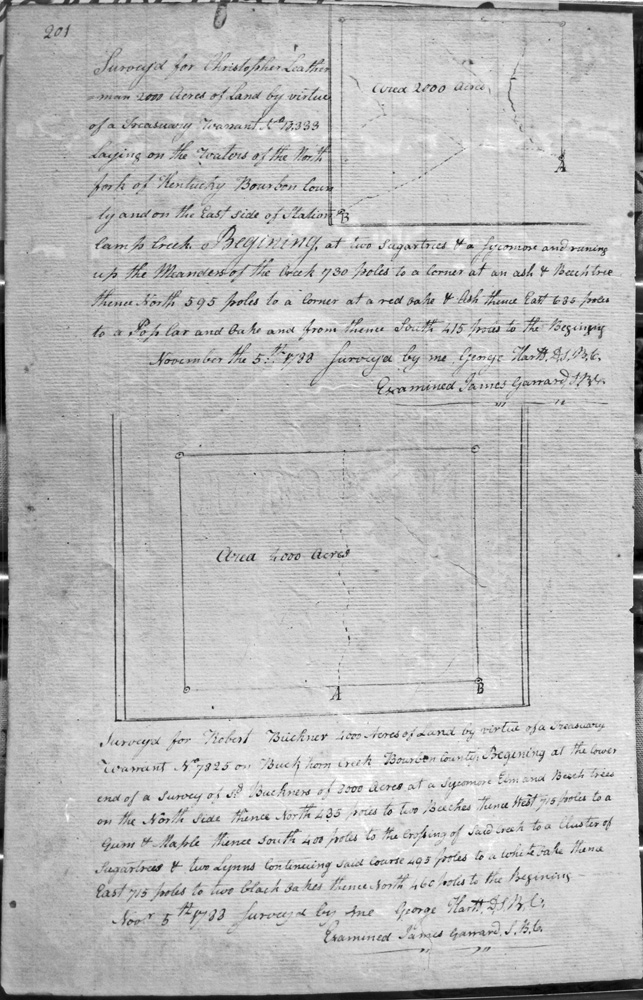 201
Survey'd for Christopher Leather
-man 2000 Acres of Land by virtue
of a Treasuary Warrant No 13333
Laying on the Waters of the North
fork of Kentucky Bourbon Coun
-ty and on the East side of Station
Camp Creek Begining, at two Sugartries & a Sycomore and runing
up the Meanders of the Creek 730 poles to a Corner at an ash & Beech tree
thence North 595 poles to a Corner at a red oake & Ash thence East 635 poles
to a Poplar and Oake and from thence South 415 poles to the Begining
November the 5th 1788 Survey'd by me George Hartt, D.S.B.C.
Examined James Garrard S.B.C.
Area 2000 Acres
A
B
Area 4000 Acres
A
B
Survey'd for Robert Buckner 4000 Acres of Land by virtue of a Treasuary
Warrant No 7825 on Buck horn Creek Bourbon County, Begening at the lower
end of a Survey of Sd Buckners of 2000 Acres at a Sycomore Elm and Beech trees
on the North Side thence North 435 poles to two Beeches thence West 715 poles to a
Gum & Maple thence South 400 poles to the Crossing of Said Creek to a Cluster of
Sugartrees & two Lynns Continuing said Course 495 poles to a white oake thence
East 715 poles to two black oakes thence North 460 poles to the Begining
Novr 5th 1788 Survey'd by me George Hartt, D.S.B.C.
Examined James Garrard, S.B.C.